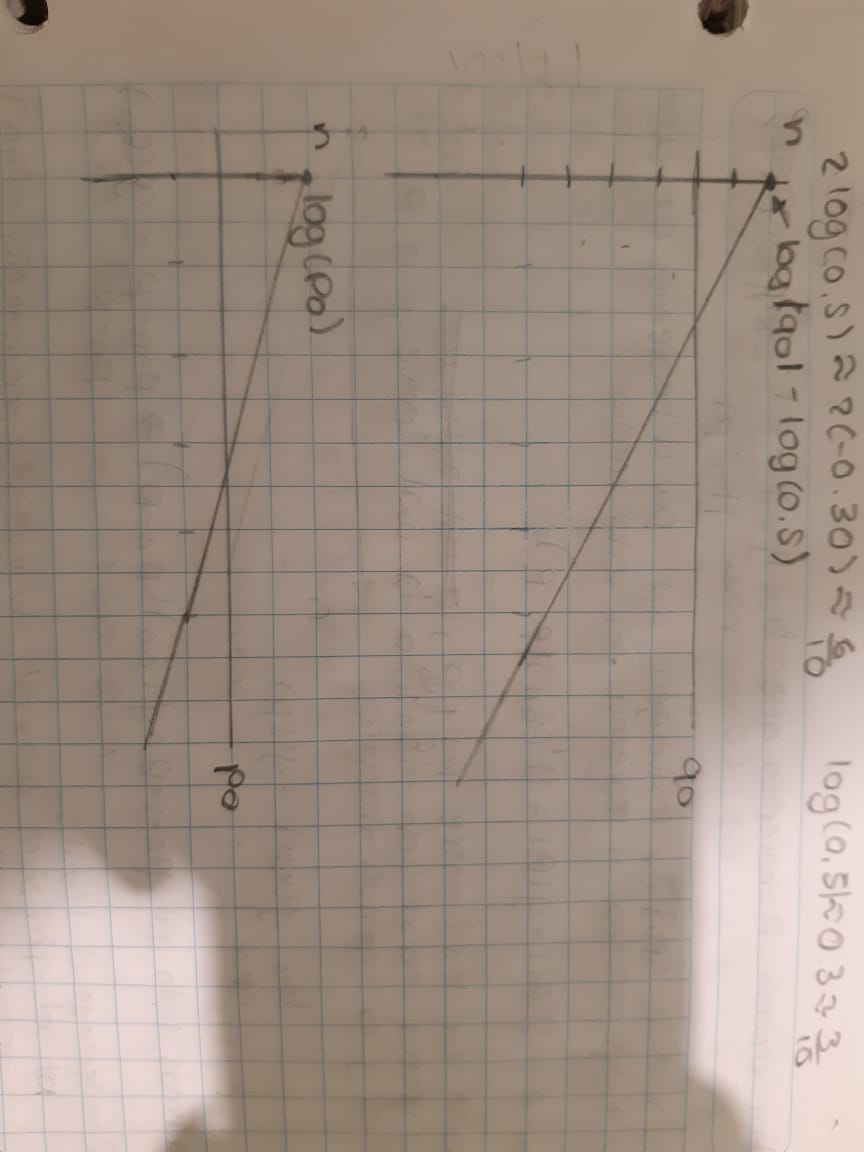 2 log(0.5) ≈ 2(-0.30) ≈ 6/10 log(0.5) ≈ 0.3 ≈ 3/10
n
log(q0) - log(0.5)
q0
n
log(p0)
p0